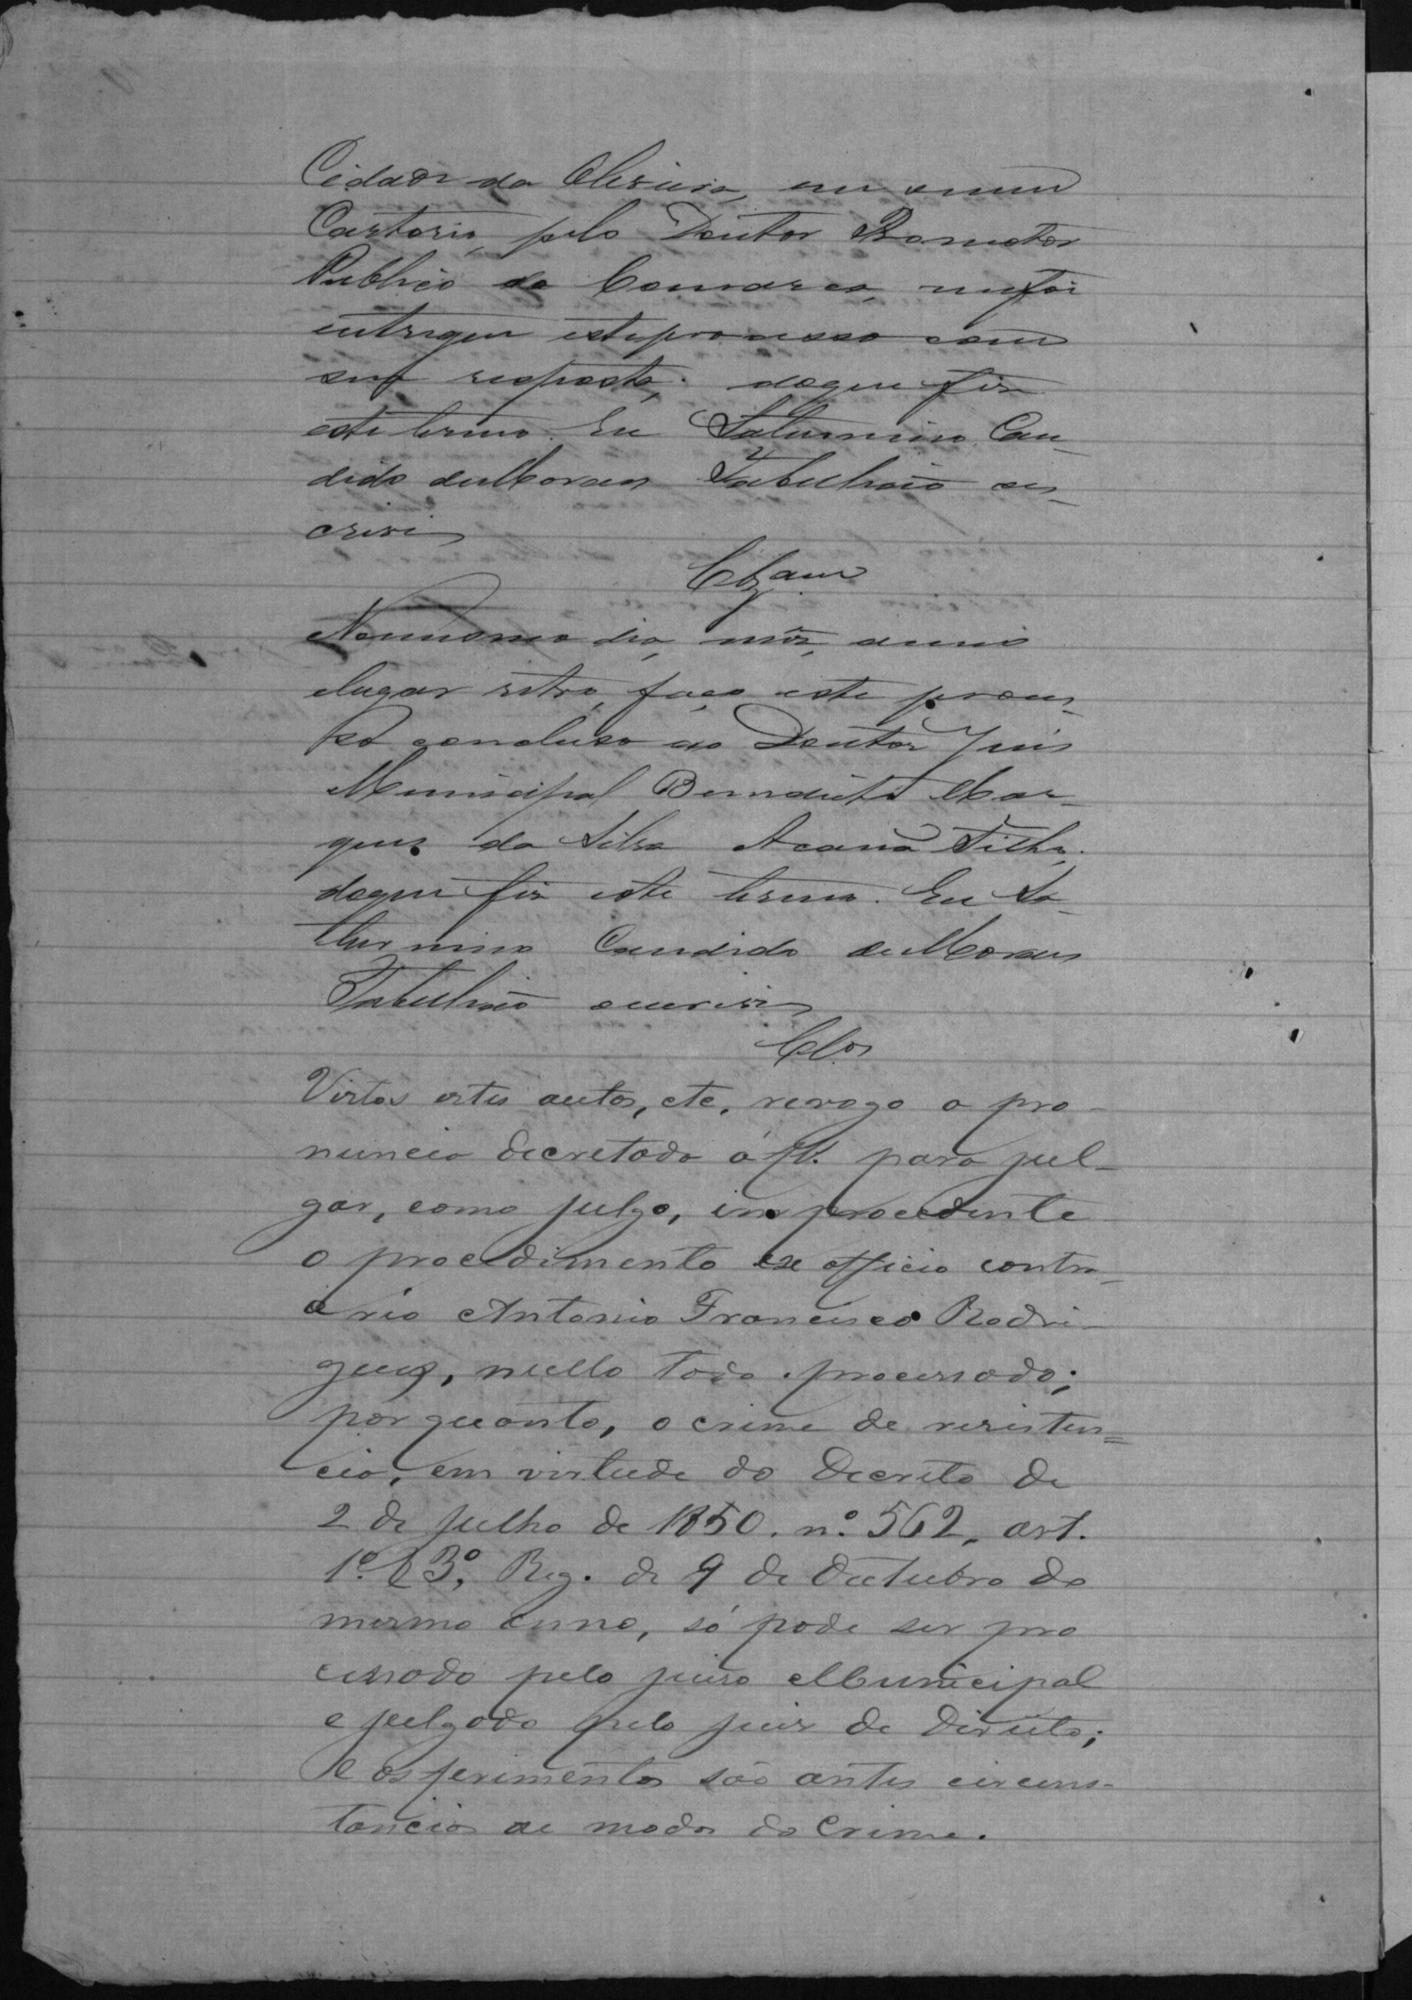 Cidade da Oliveira, em o meu
Cartorio, pelo Doutor Promotor
Publico da Comarca, me foi
entregue este processo com
sua resposta; do que fiz
este termo. Eu Saturnino Can-
dido de Moraes Tabelião es-
crevi
Clzam
No mesmo dia, mês, anno
e lugar retro, faço este proces-
so concluso ao Doutor Juis
Municipal Benedicto Mar-
ques da Silva Acauã Filho;
do que fiz este termo. Eu Sa-
turnino Candido de Moraes
Tabelião escrevi
Clos
Vistos estes autos, etc, revogo a pro-
nuncia decretada á fl. para jul-
gar, como julgo, improcedente
o procedimento ex officio contra
o réo Antonio Francisco Rodri-
gues, nullo todo o processado;
por quanto, o crime de resisten=
cia, em virtude do Decreto de
2 de Julho de 1850. nº 562, art.
1º § 3º, Reg. de 9 de Outubro do
mesmo anno, só pode ser pro
cessado pelo juiso Municipal
e julgado pelo juiz de Direito;
e os ferimentos são antes circuns-
tancias de modo do crime.